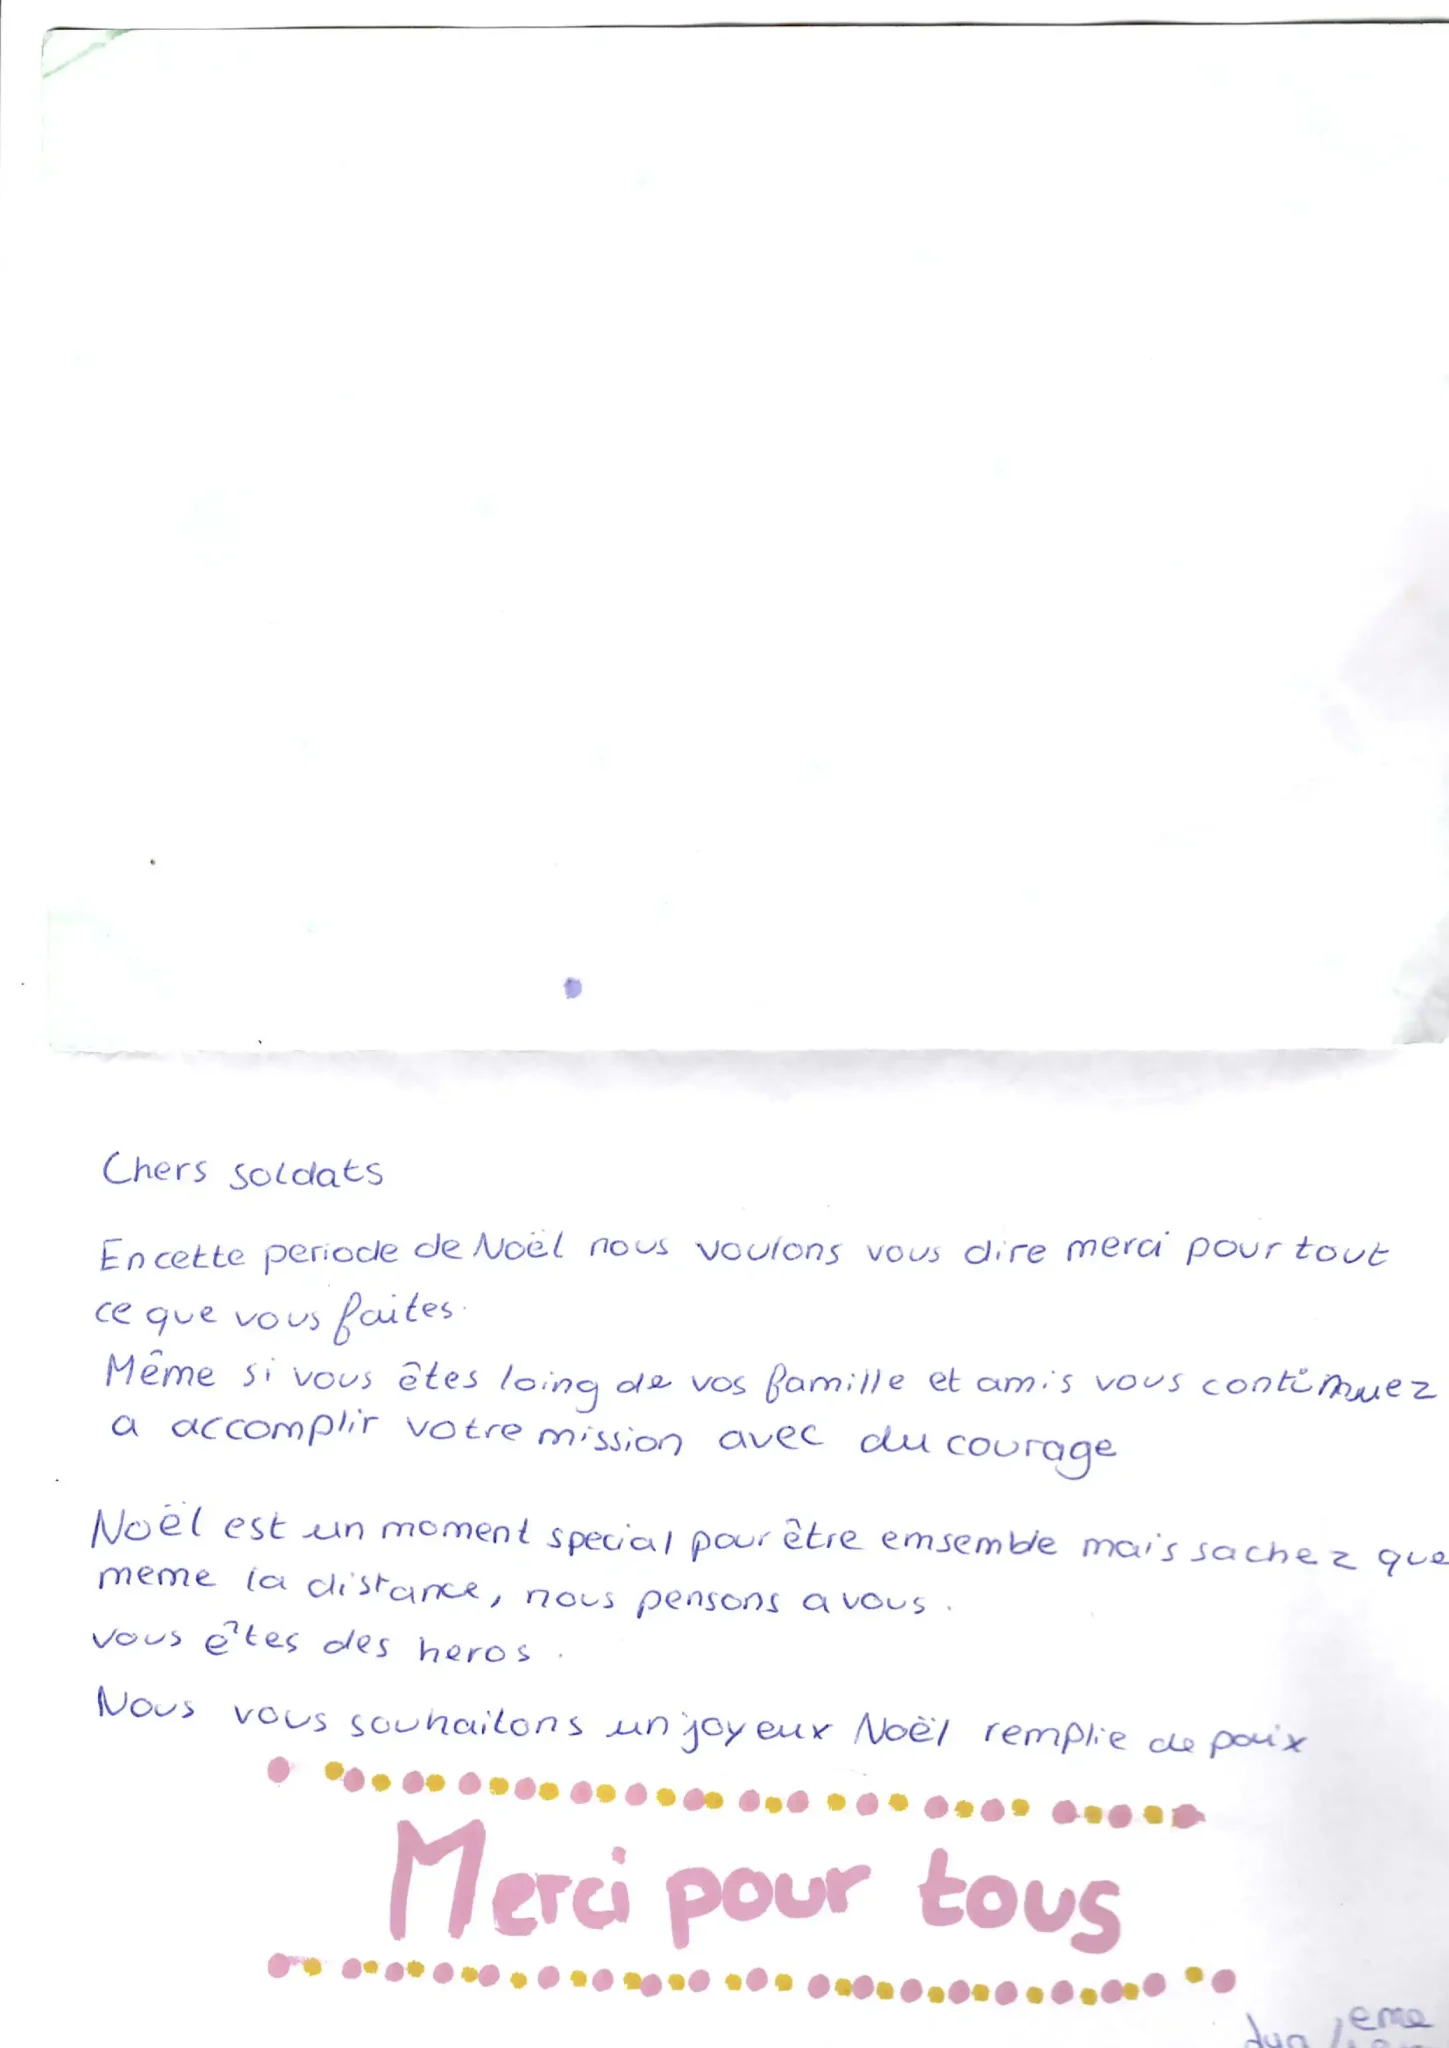 Chers soldats
En cette periode de Noël nous voulons vous dire merci pour tout
ce que vous faites.
Même si vous êtes loing de vos famille et amis vous continuez
a accomplir votre mission avec du courage
Noël est un moment special pour être emsemble mais sachez que
meme la distance, nous pensons a vous.
vous êtes des heros.
Nous vous souhaitons un joyeux Noël remplie de paix
Merci pour tous
eme